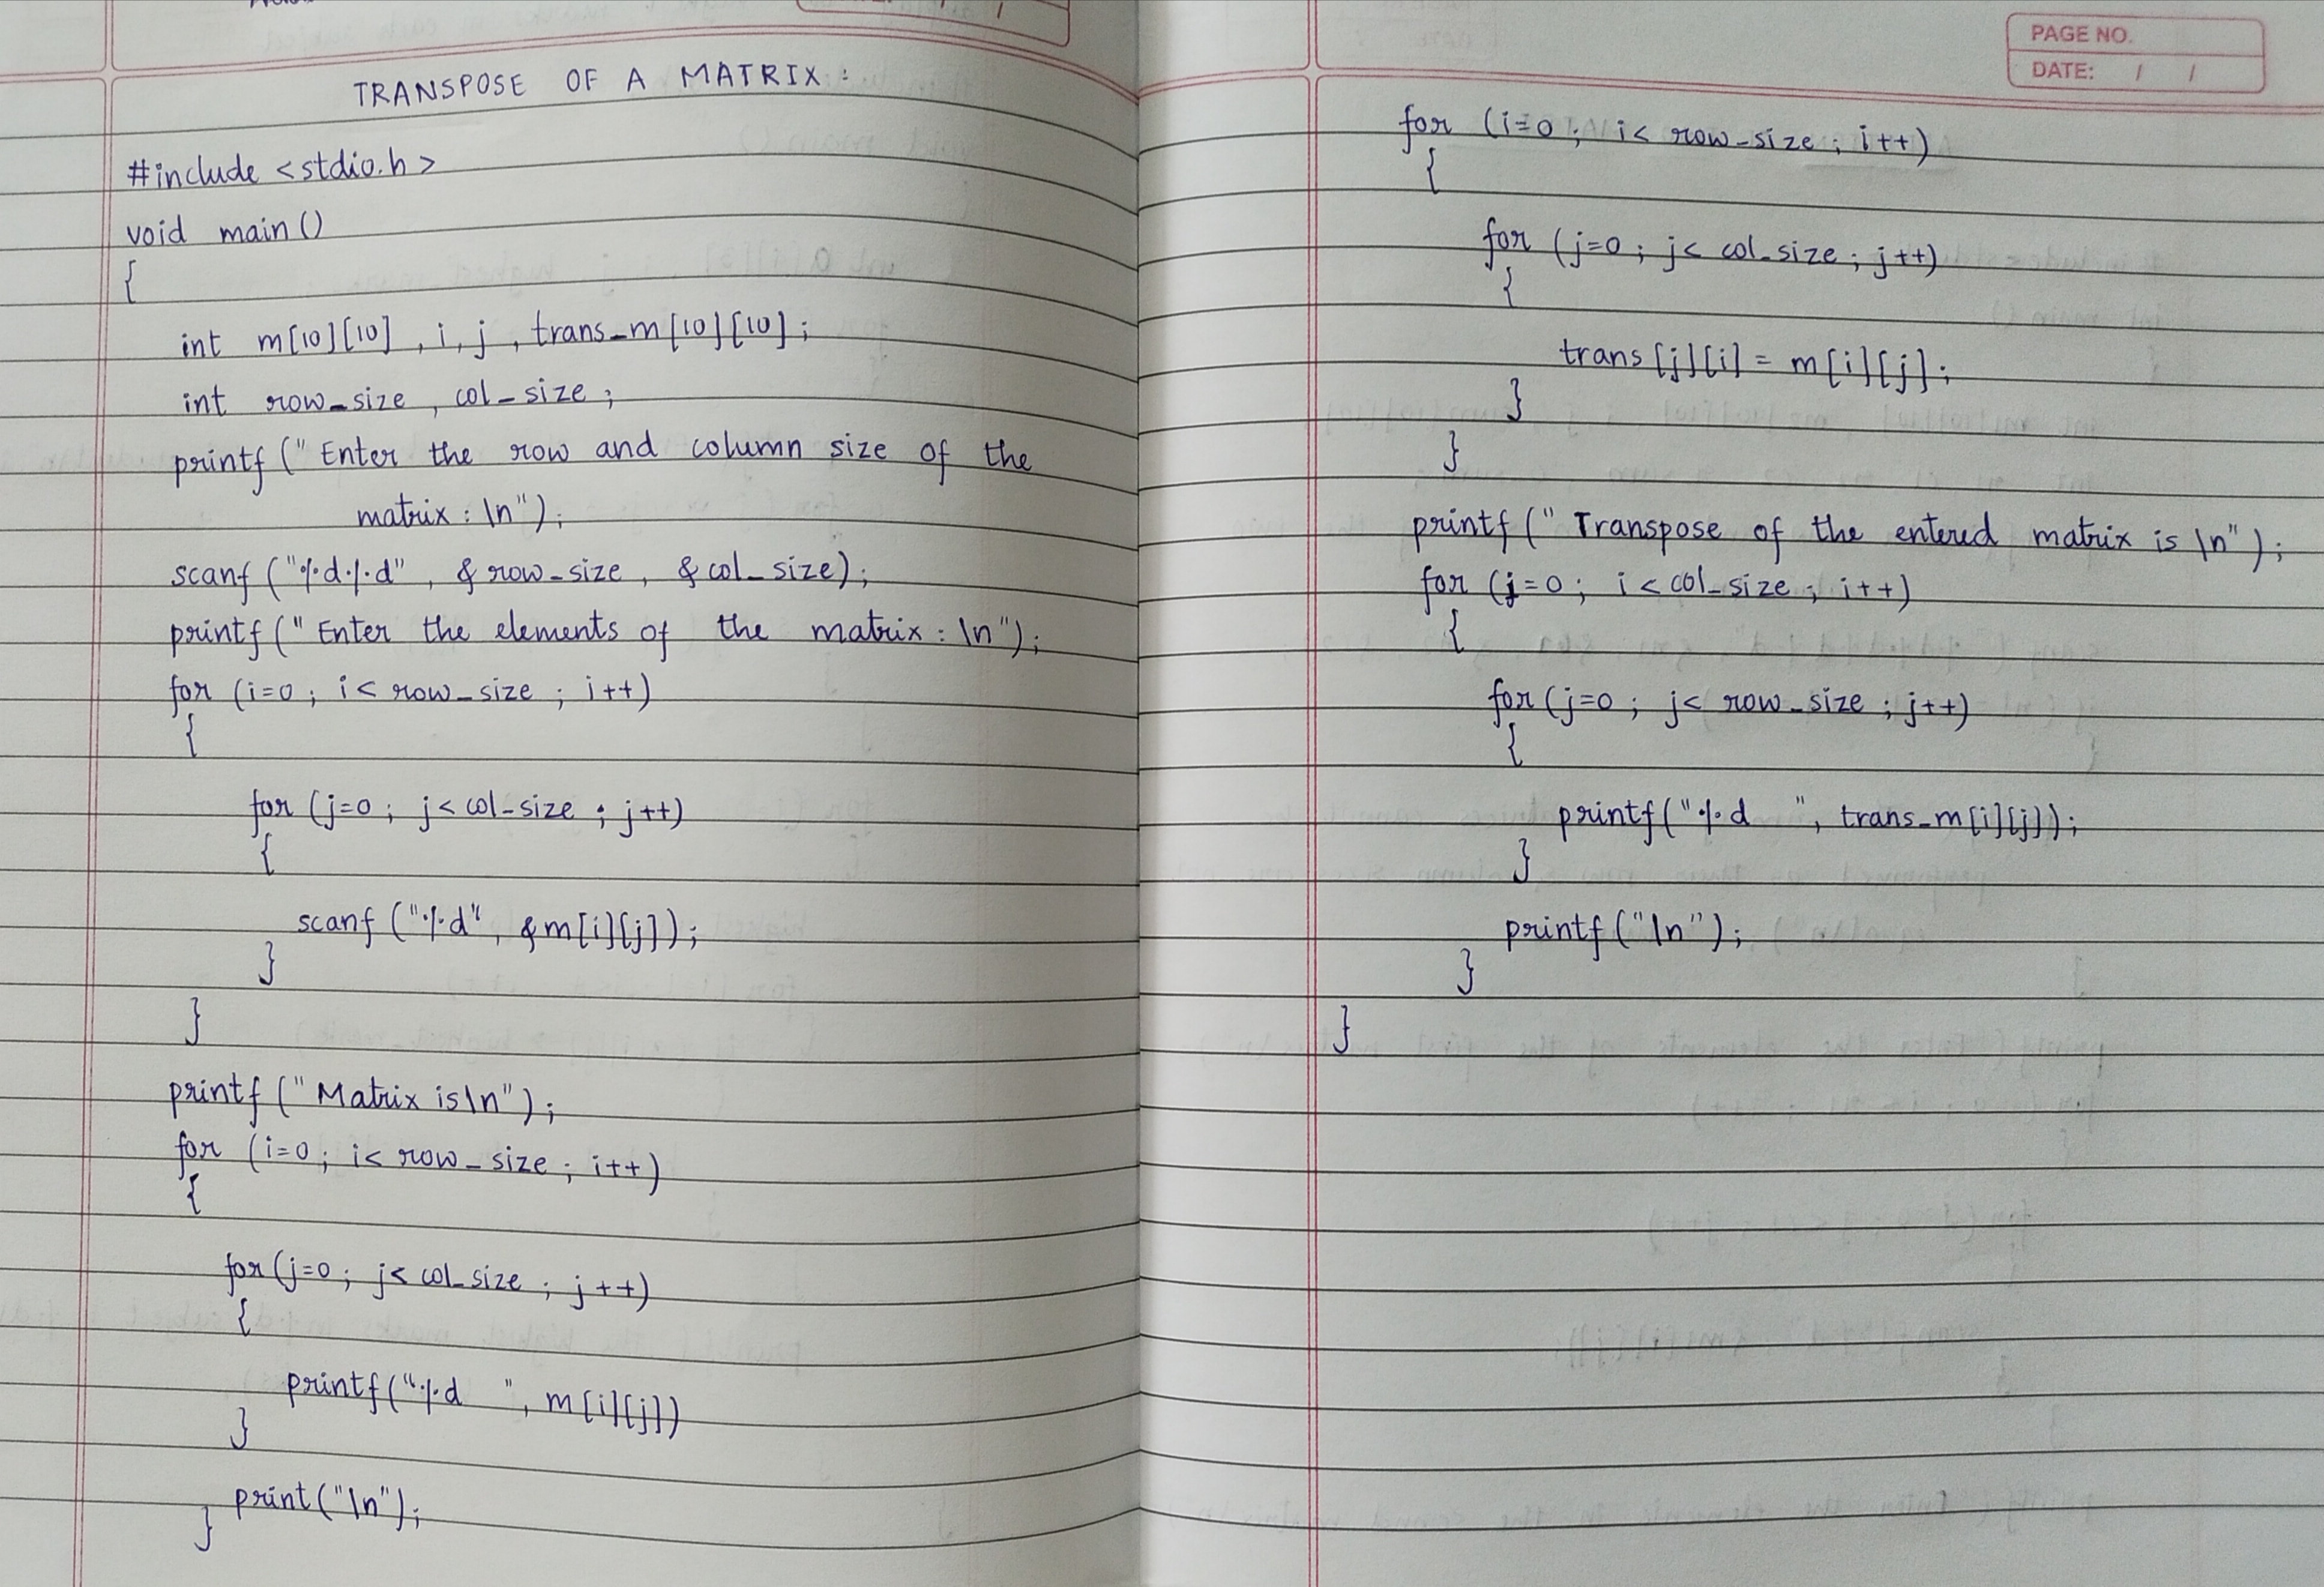 TRANSPOSE OF A MATRIX :
#include <stdio.h>
void main ()
{
int m[10][10] , i, j , trans_m[10][10] ;
int row_size , col_size ;
printf (" Enter the row and column size of the
matrix : \n") ;
scanf ("%d%d" , & row_size , & col_size) ;
printf (" Enter the elements of the matrix : \n") ;
for (i=0 ; i < row_size ; i++)
{
for (j=0 ; j < col_size ; j++)
{
scanf ("%d" , &m[i][j]) ;
}
}
printf (" Matrix is\n") ;
for (i=0 ; i< row_size ; i++)
{
for (j=0 ; j< col_size ; j++)
{
printf ("%d ", m[i][j])
}
print ("\n") ;
}
PAGE NO.
DATE: / /
for (i=0 ; i< row_size ; i++)
{
for (j=0 ; j< col_size ; j++)
{
trans [j][i] = m[i][j] ;
}
}
printf (" Transpose of the entered matrix is \n") ;
for (j=0 ; i < col_size ; i++)
{
for (j=0 ; j< row_size ; j++)
{
printf ("%d ", trans_m[i][j]) ;
}
printf ("\n") ;
}
}